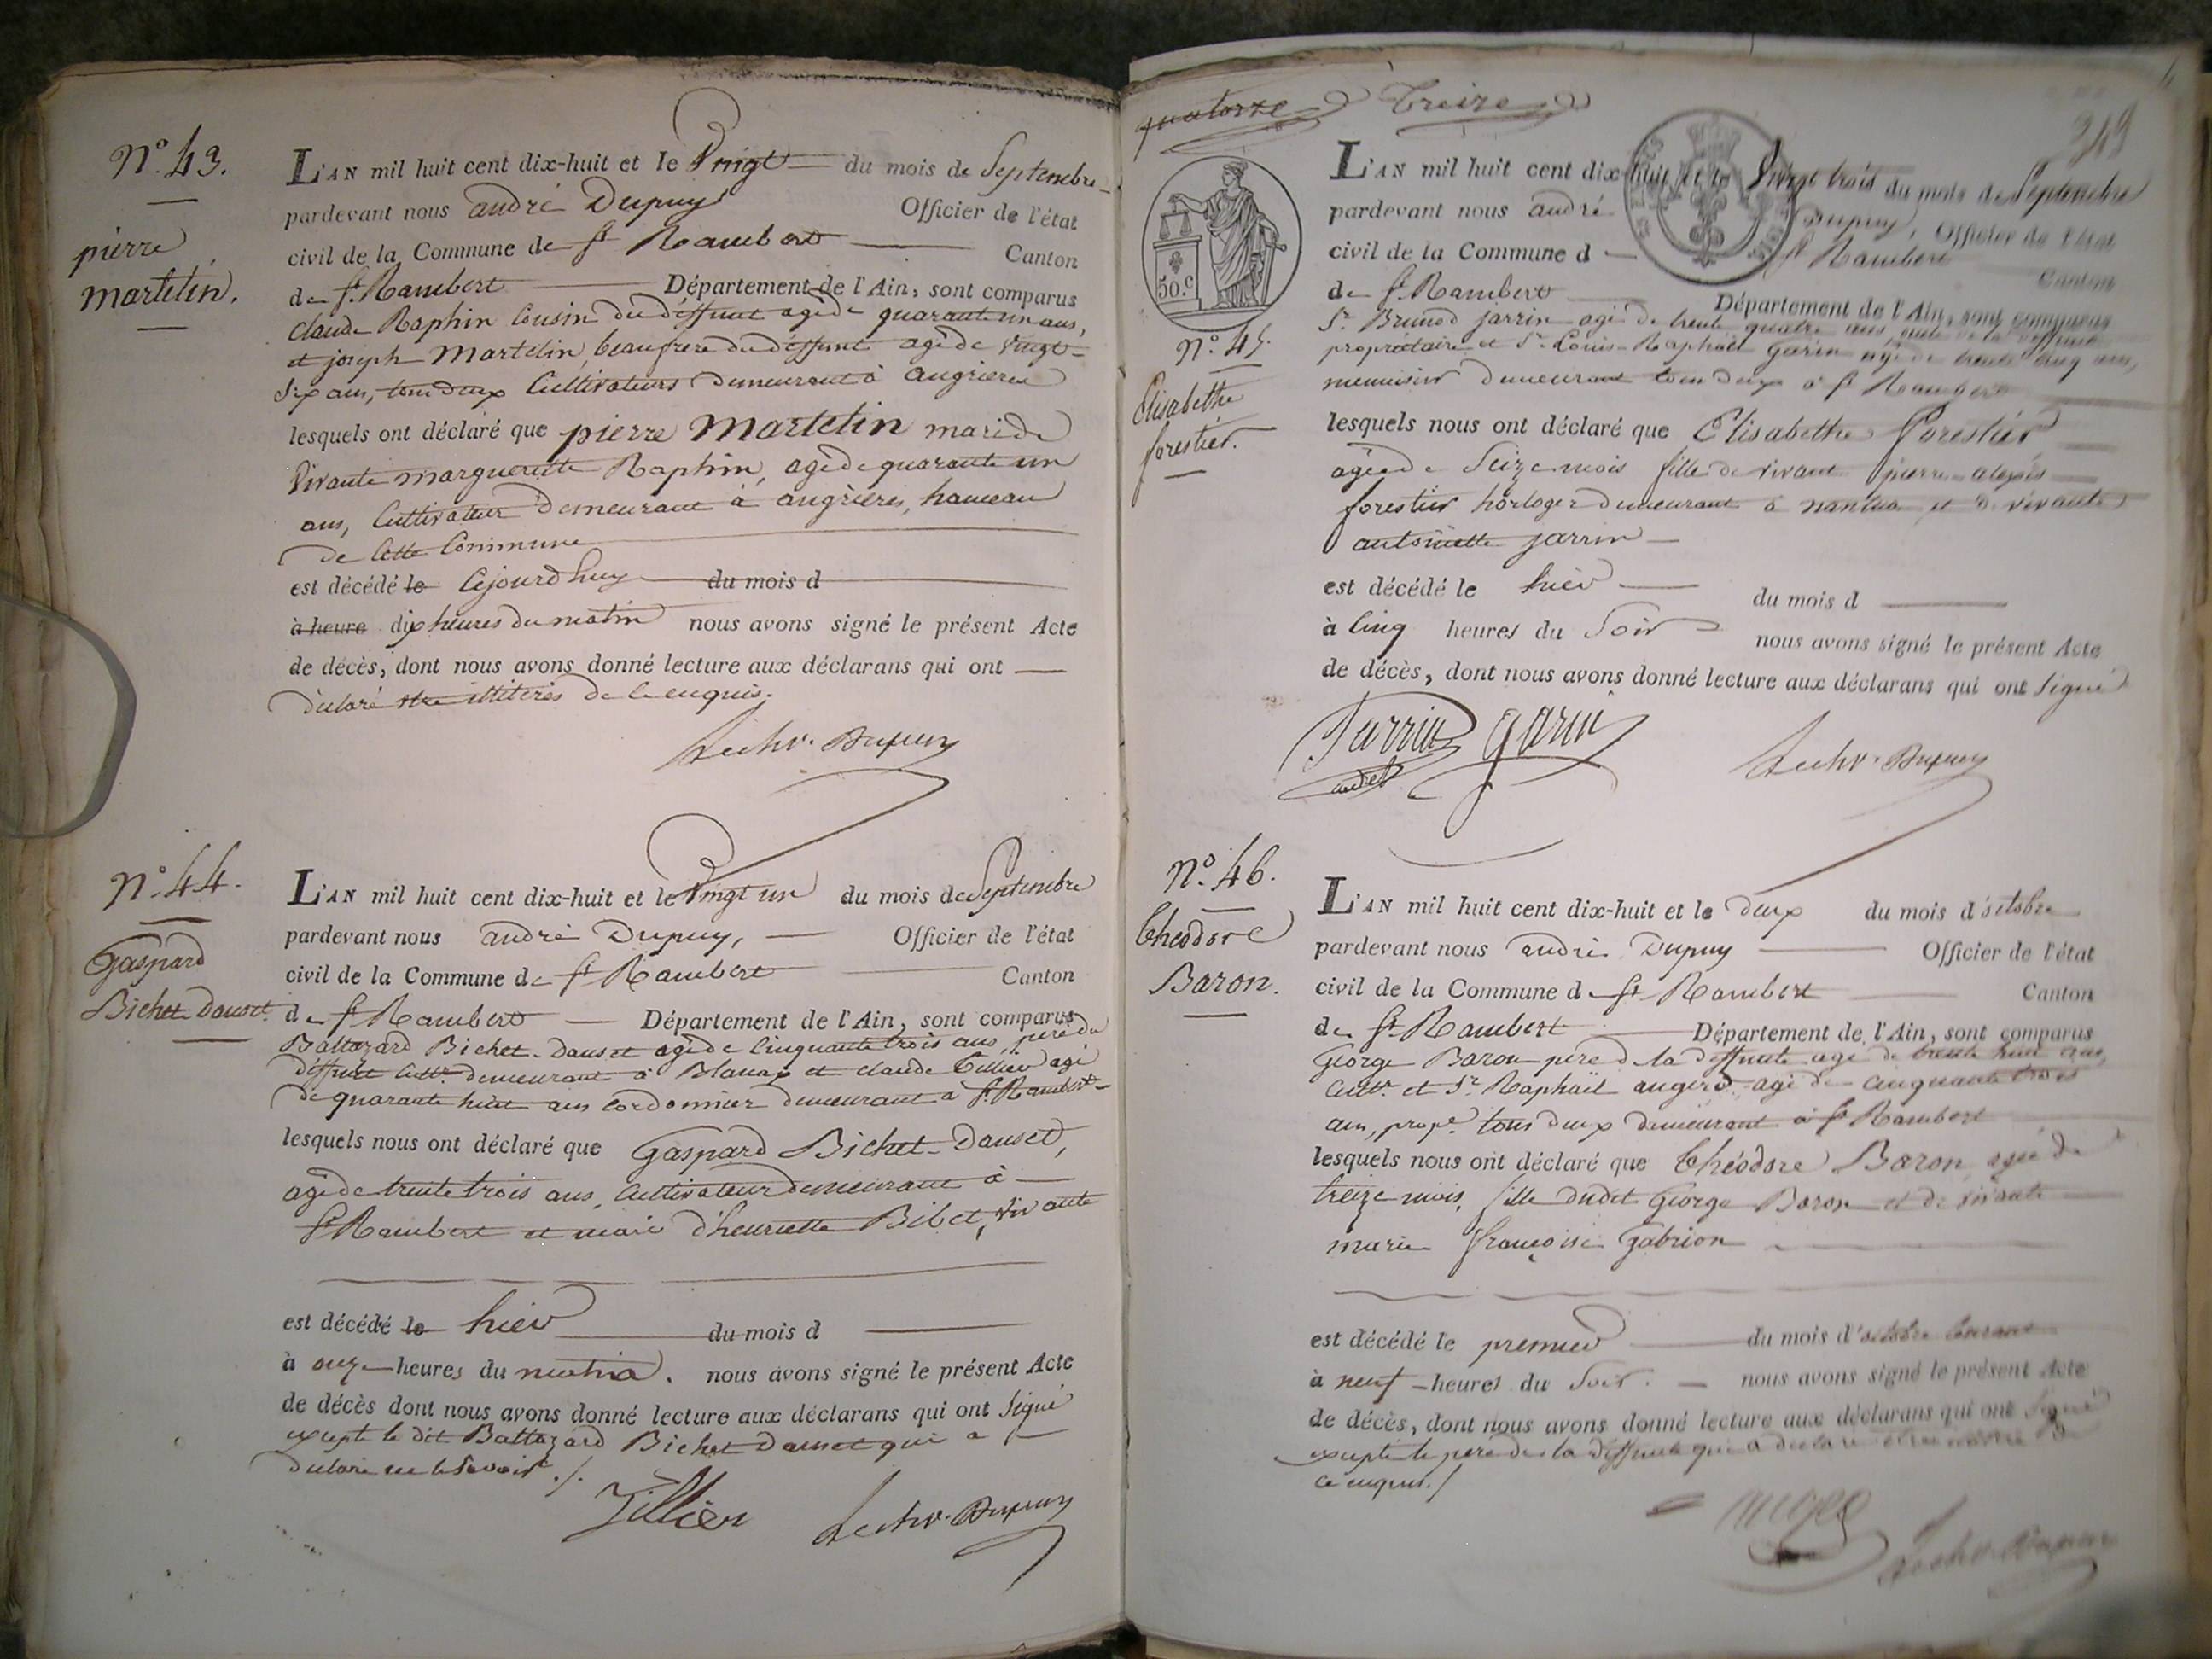 N.º 43.
pierre
martelin.
L'AN mil huit cent dix-huit et le Vingt du mois de Septembre
pardevant nous andré Dupuy Officier de l'état
civil de la Commune de St Rambert Canton
de St Rambert Département de l'Ain, sont comparus
claude Raphin Cousin du deffunt agé de quarante un ans,
et joseph martelin, beaufrere du deffunt agé de vingt
six ans, tous deux Cultivateurs demeurant à angrieres
lesquels ont déclaré que pierre martelin mari de
Vivante margueritte Raphin, agé de quarante un
ans, Cultivateur demeurant à angrières, hameau
de Cette Commune
est décédé le Cejourd'huy du mois d
à heure dix heures du matin nous avons signé le présent Acte
de décès, dont nous avons donné lecture aux déclarans qui ont
déclaré être illiterés de ce enquis.
Dupuy
N.º 44.
Gaspard
Bichet Dauset.
L'AN mil huit cent dix-huit et le Vingt un du mois de Septembre
pardevant nous andré Dupuy, Officier de l'état
civil de la Commune de St Rambert Canton
de St Rambert Département de l'Ain, sont comparus
Baltazard Bichet-Dauset agé de Cinquante trois ans, père du
deffunt Cultr. demeurant à Blanaz et claude Tillier agé
de quarante huit ans Cordonnier demeurant à St Rambert
lesquels nous ont déclaré que Gaspard Bichet-Dauset,
agé de trente trois ans, Cultivateur demeurant à
St Rambert et mari d'henriette Bibet, vivante
est décédé le hier du mois d
à onze heures du matin. nous avons signé le présent Acte
de décès dont nous avons donné lecture aux déclarans qui ont signé
excepté le dit Baltazard Bichet Dauset qui a
déclaré ne le savoir ./.
Tillier Dupuy
quatorze Treize
349
50.c
N.º 45.
Elisabethe
forestier.
L'AN mil huit cent dix-huit et le Vingt trois du mois de Septembre
pardevant nous andré Dupuy, Officier de l'état
civil de la Commune d St Rambert Canton
de St Rambert Département de l'Ain, sont comparus
Sr. Bruno jarrin agé de trente quatre ans, oncle de la deffunte
proprietaire et Sr. Louis-Raphaël Garin agé de trente cinq ans,
menuisier demeurant tous deux à St Rambert
lesquels nous ont déclaré que Elisabethe forestier
agée de Seize mois fille de vivant pierre-alexis
forestier horloger demeurant à nantua et de vivante
antoinette jarrin
est décédé le hier du mois d
à Cinq heures du Soir nous avons signé le présent Acte
de décès, dont nous avons donné lecture aux déclarans qui ont Signé
Jarrin garin
Dupuy
N.º 46.
théodore
Baron.
L'AN mil huit cent dix-huit et le deux du mois d'octobre
pardevant nous andré Dupuy Officier de l'état
civil de la Commune de St Rambert Canton
de St Rambert Département de l'Ain, sont comparus
George Baron père de la deffunte agé de trente huit ans,
Cultr. et Sr. Raphaël augerd agé de cinquante trois
ans, propre. tous deux demeurant à St Rambert
lesquels nous ont déclaré que théodore Baron agée de
treize mois, fille dudit George Baron et de vivante
marie françoise Gabrion
est décédé le premier du mois d'octobre Courant
à neuf heures du Soir. nous avons signé le présent Acte
de décès, dont nous avons donné lecture aux déclarans qui ont Signé
excepté le père de la deffunte qui a déclaré de
ce enquis./
Dupuy